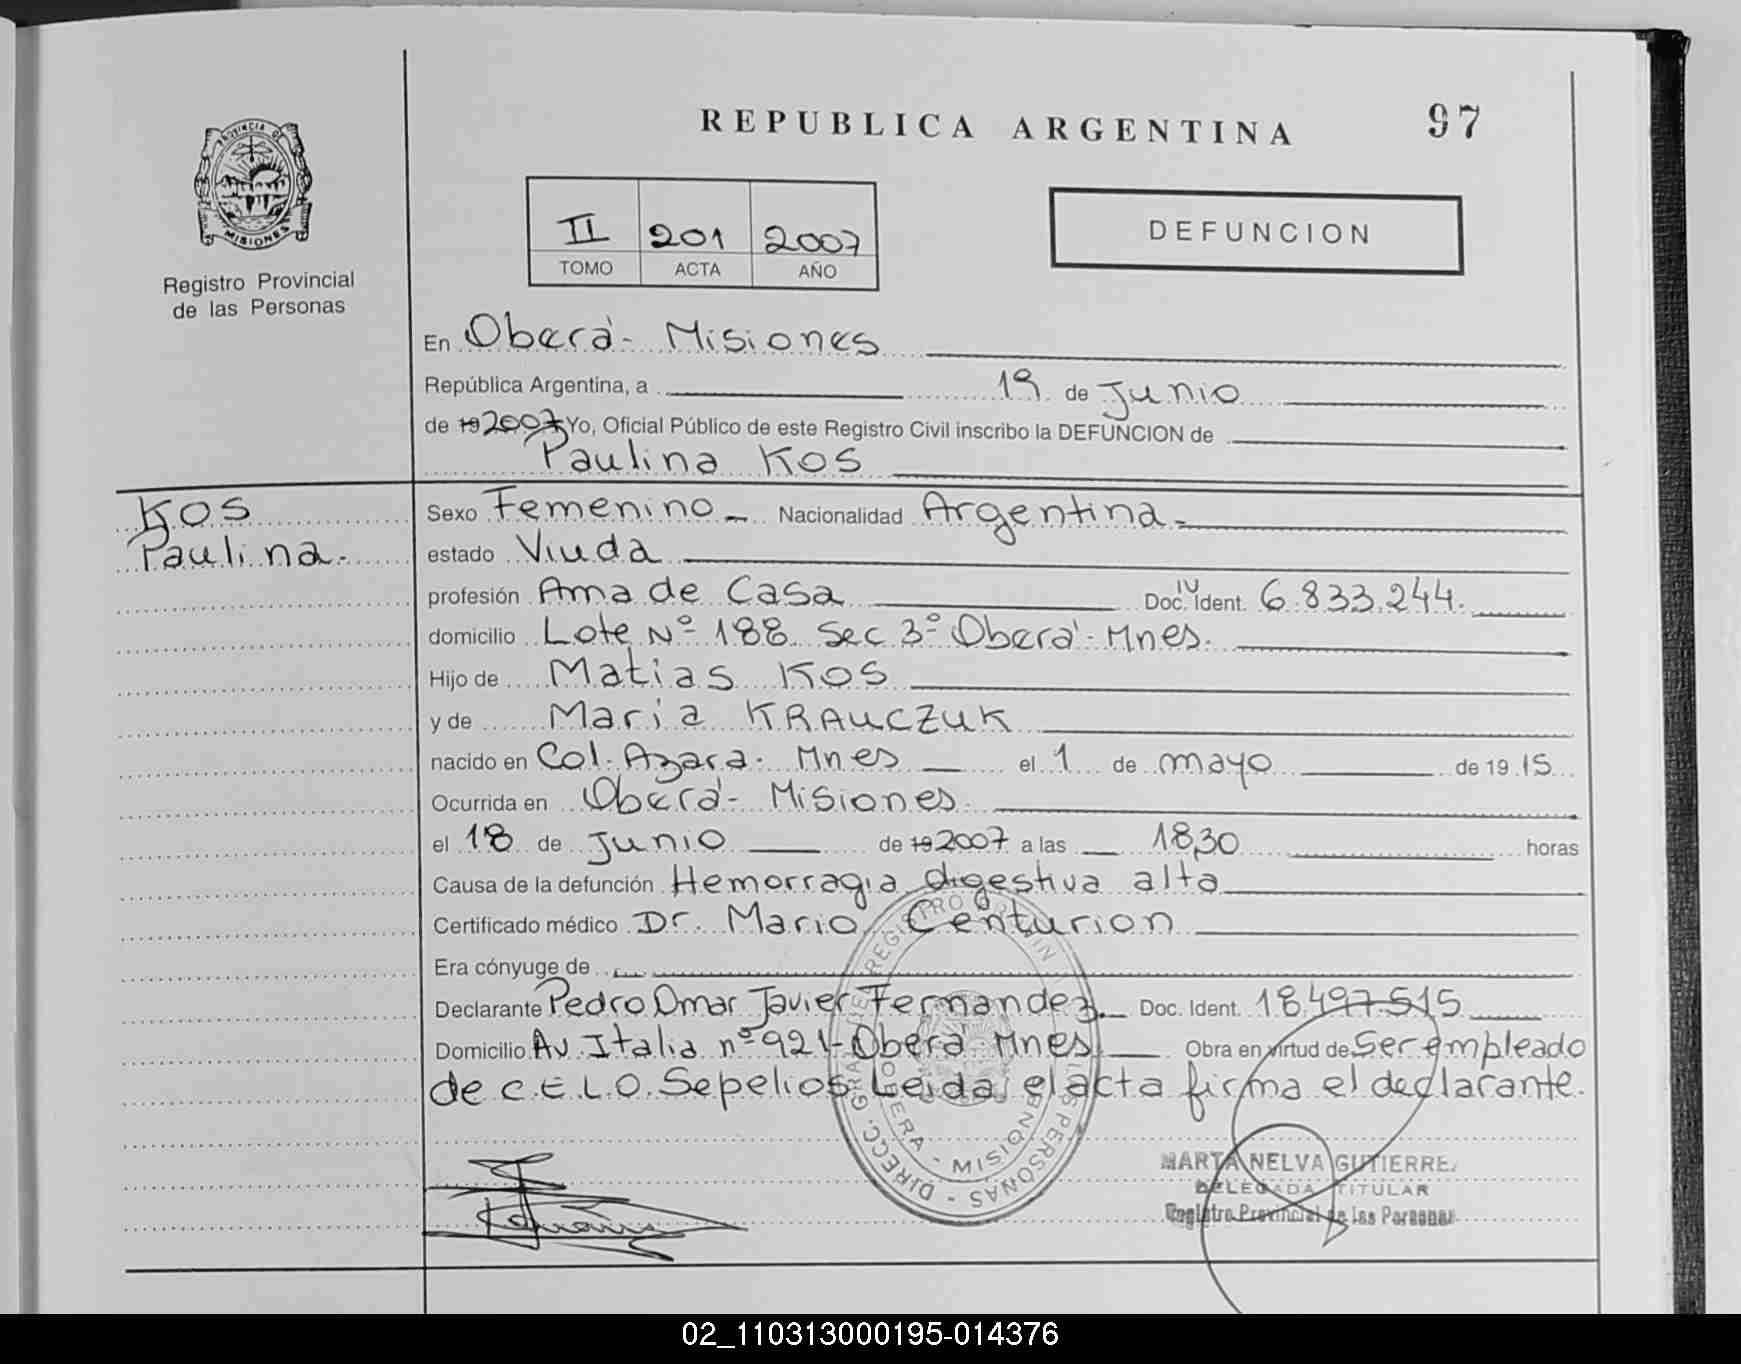 REPUBLICA ARGENTINA
97
PROVINCIA DE
MISIONES
Registro Provincial
de las Personas
II 201 2007
TOMO ACTA AÑO
DEFUNCION
En Oberá - Misiones
República Argentina, a 19 de Junio
de 19 2007 Yo, Oficial Público de este Registro Civil inscribo la DEFUNCION de
Paulina KOS
KOS
Paulina.-
Sexo Femenino - Nacionalidad Argentina -
estado Viuda
profesión Ama de Casa Doc. Ident. IV 6.833.244.
domicilio Lote Nº 188 Sec 3º Oberá - Mnes.
Hijo de Matias KOS
y de Maria KRAUCZUK
nacido en Col. Azara. Mnes el 1 de mayo de 19 15
Ocurrida en Oberá - Misiones.
el 18 de Junio de 19 2007 a las 18,30 horas
Causa de la defunción Hemorragia digestiva alta
Certificado médico Dr. Mario Centurion
Era cónyuge de
Declarante Pedro Omar Javier Fernandez. Doc. Ident. 18.497.515
Domicilio Av. Italia nº 921 - Oberá Mnes Obra en virtud de Ser empleado
de C.E.L.O. Sepelios. Leida el acta firma el declarante.
MISIONES
MARTA NELVA GUTIERREZ
DELEGADA TITULAR
Registro Provincial de las Personas
02_110313000195-014376